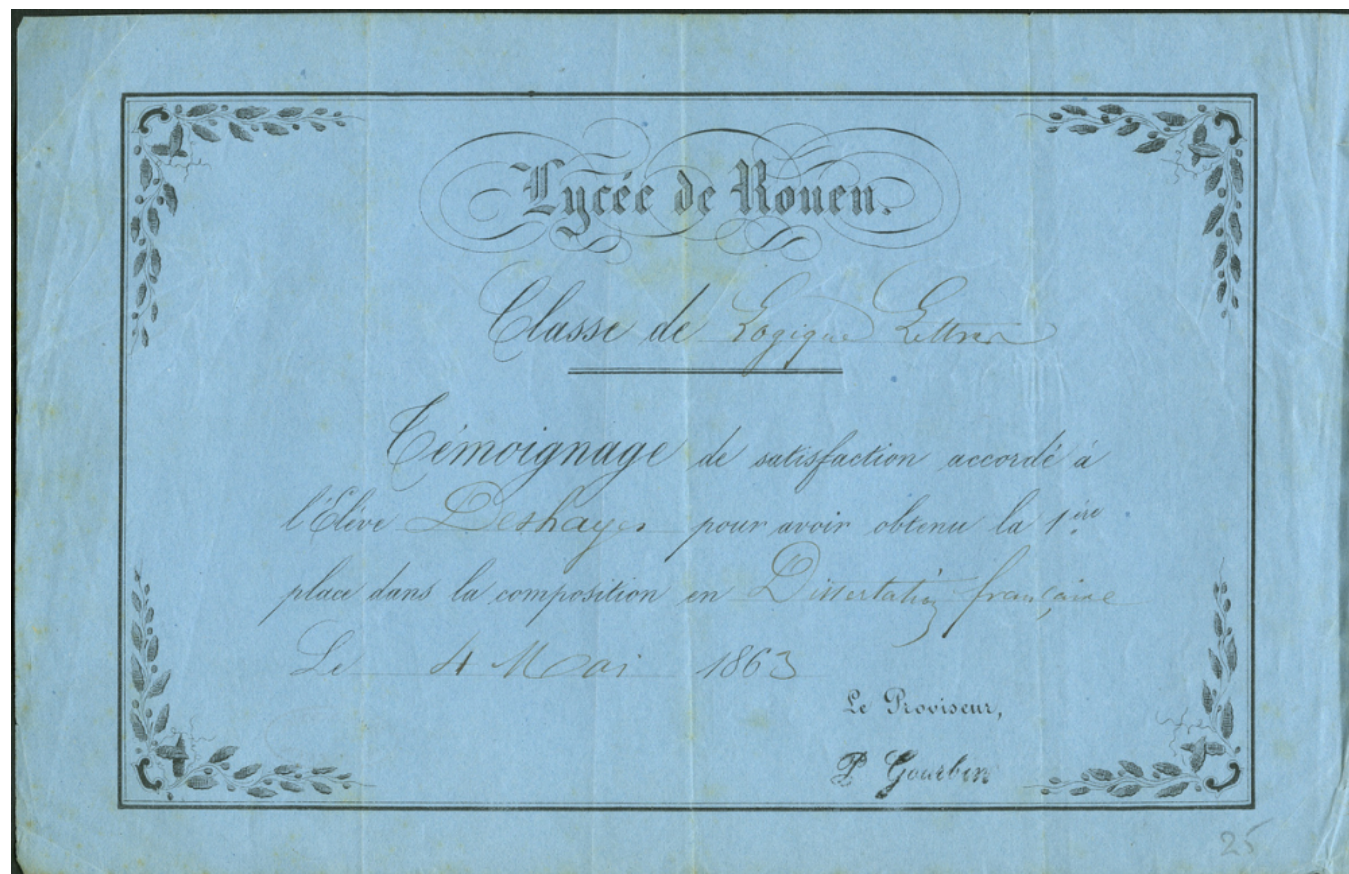 Lycée de Rouen.
Classe de Logique Lettres
Témoignage de satisfaction accordé à
l'Élève Deshayes pour avoir obtenu la 1ère
place dans la composition en Dissertation française
Le 4 Mai 1863
Le Proviseur,
P. Gourbin
25